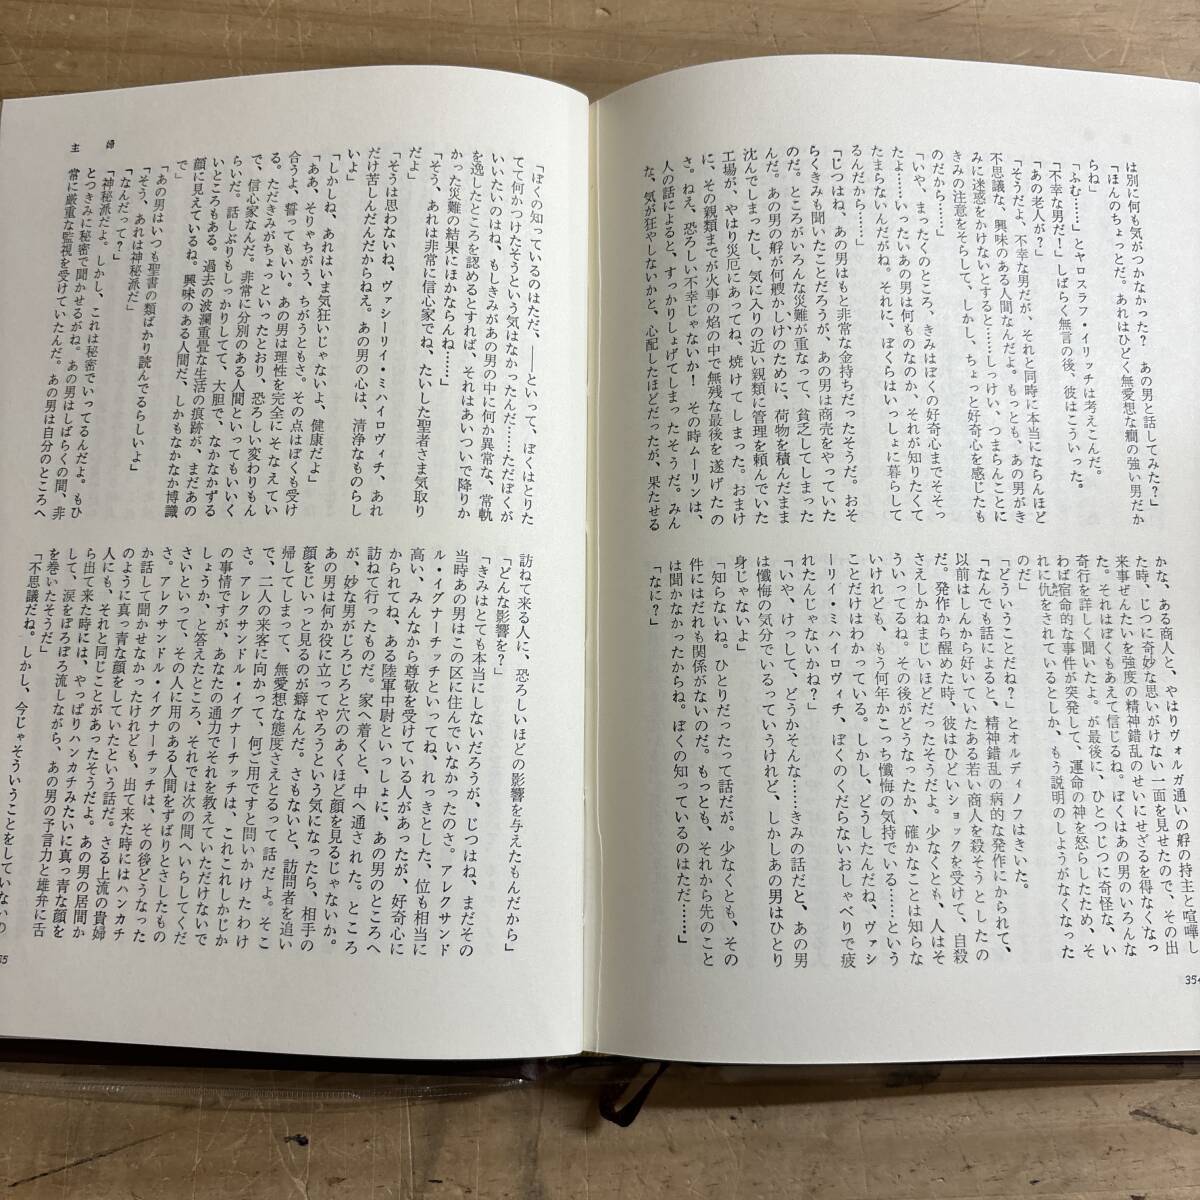 は別に何も気がつかなかった？　あの男と話してみた？」
「ほんのちょっとだ。あれはひどく無愛想な癇の強い男だか
らね」
「ふむ……」とヤロスラフ・イリッチは考えこんだ。
「不幸な男だ！」しばらく無言の後、彼はこういった。
「あの老人が？」
「そうだよ、不幸な男だが、それと同時に本当にならんほど
不思議な、興味のある人間なんだよ。もっとも、あの男がき
みに迷惑をかけないとすると……しっけい、つまらんことに
きみの注意をそらして、しかし、ちょっと好奇心を感じたも
のだから……」
「いや、まったくのところ、きみはぼくの好奇心までそそっ
たよ……いったいあの男は何ものなのか、それが知りたくて
たまらないんだがね。それに、ぼくらはいっしょに暮らして
るんだから……」
「じつはね、あの男はもと非常な金持ちだったそうだ。おそ
らくきみも聞いたことだろうが、あの男は商売をやっていた
のだ。ところがいろんな災難が重なって、貧乏してしまった
んだ。あの男の艀が何艘かしけのために、荷物を積んだまま
沈んでしまったし、気に入りの近い親類に管理を頼んでいた
工場が、やはり災厄にあってね、焼けてしまった。おまけ
に、その親類までが火事の焰の中で無残な最後を遂げたの
さ。ねえ、恐ろしい不幸じゃないか！　その時ムーリンは、
人の話によると、すっかりしょげてしまったそうだ。みん
な、気が狂やしないかと、心配したほどだったが、果たせる
かな、ある商人と、やはりヴォルガ通いの艀の持主と喧嘩し
た時、じつに奇妙な思いがけない一面を見せたので、その出
来事ぜんたいを強度の精神錯乱のせいにせざるを得なくなっ
た。それはぼくもあえて信じるね。ぼくはあの男のいろんな
奇行を詳しく聞いたよ。が最後に、ひとつじつに奇怪な、い
わば宿命的な事件が突発して、運命の神を怒らしたため、そ
れに仇をされているとしか、もう説明のしようがなくなった
のだ」
「どういうことだね？」とオルディノフはきいた。
「なんでも話によると、精神錯乱の病的な発作にかられて、
以前はしんから好いていたある若い商人を殺そうとしたの
だ。発作から醒めた時、彼はひどいショックを受けて、自殺
さえしかねまじいほどだったそうだよ。少なくとも、人はそ
ういってるね。その後がどうなったか、確かなことは知らな
いけれども、もう何年かこっち懺悔の気持でいる……という
ことだけはわかっている。しかし、どうしたんだね、ヴァシ
ーリイ・ミハイロヴィチ、ぼくのくだらないおしゃべりで疲
れたんじゃないかね？」
「いや、けっして、どうかそんな……きみの話だと、あの男
は懺悔の気分でいるっていうけれど、しかしあの男はひとり
身じゃないよ」
「知らないね。ひとりだったって話だが。少なくとも、その
件にはだれも関係がないのだ。もっとも、それから先のこと
は聞かなかったからね。ぼくの知っているのはただ……」
「なに？」
354
主婦
「ぼくの知っているのはただ、――といって、ぼくはとりた
てて何かつけたそうという気はなかったんだ……ただぼくが
いいたいのはね、もしきみがあの男の中に何か異常な、常軌
を逸したところを認めるとすれば、それはあいついで降りか
かった災難の結果にほかならんね……」
「そう、あれは非常に信心家でね、たいした聖者さま気取り
だよ」
「そうは思わないね、ヴァシーリイ・ミハイロヴィチ、あれ
だけ苦しんだんだからねえ。あの男の心は、清浄なものらし
いよ」
「しかしね、あれはいま気狂いじゃないよ、健康だよ」
「ああ、そりゃちがう、ちがうともさ。その点はぼくも受け
合うよ、誓ってもいい。あの男は理性を完全にそなえてい
る。ただきみがちょっといったとおり、恐ろしい変わりもん
で、信心家なんだ。非常に分別のある人間といってもいいく
らいだ。話しぶりもしっかりしてて、大胆で、なかなかずる
いところもある。過去の波瀾重畳な生活の痕跡が、まだあの
顔に見えているね。興味のある人間だ、しかもなかなか博識
で」
「あの男はいつも聖書の類ばかり読んでるらしいよ」
「そう、あれは神秘派だ」
「なんだって？」
「神秘派だよ。しかし、これは秘密でいってるんだよ。もひ
とつきみに秘密で聞かせるがね。あの男はしばらくの間、非
常に厳重な監視を受けていたんだ。あの男は自分のところへ
訪ねて来る人に、恐ろしいほどの影響を与えたもんだから」
「どんな影響を？」
「きみはとても本当にしないだろうが、じつはね、まだその
当時あの男はこの区に住んでいなかったのさ。アレクサンド
ル・イグナーチッチといってね、れっきとした、位も相当に
高い、みんなから尊敬を受けている人があったが、好奇心に
かられてね、ある陸軍中尉といっしょに、あの男のところへ
訪ねて行ったものだ。家へ着くと、中へ通された。ところ
が、妙な男がじろじろと穴のあくほど顔を見るじゃないか。
あの男は何か役に立ってやろうという気になったら、相手の
顔をじいっと見るのが癖なんだ。さもないと、訪問者を追い
帰してしまって、無愛想な態度さえとるって話だよ。そこ
で、二人の来客に向かって、何ご用ですと問いかけたわけ
さ。アレクサンドル・イグナーチッチは、これこれしかじか
の事情ですが、あなたの通力でそれを教えていただけないで
しょうか、と答えたところ、それでは次の間へいらしてくだ
さいといって、その人に用のある人間をずばりとさしたもの
さ。アレクサンドル・イグナーチッチは、その後どうなった
か話して聞かせなかったけれども、出て来た時にはハンカチ
のように真っ青な顔をしていたという話だ。さる上流の貴婦
人にも、それと同じことがあったそうだよ。あの男の居間か
ら出て来た時には、やっぱりハンカチみたいに真っ青な顔を
して、涙をぽろぽろ流しながら、あの男の予言力と雄弁に舌
を巻いたそうだ」
「不思議だね。しかし、今じゃそういうことをしていないの